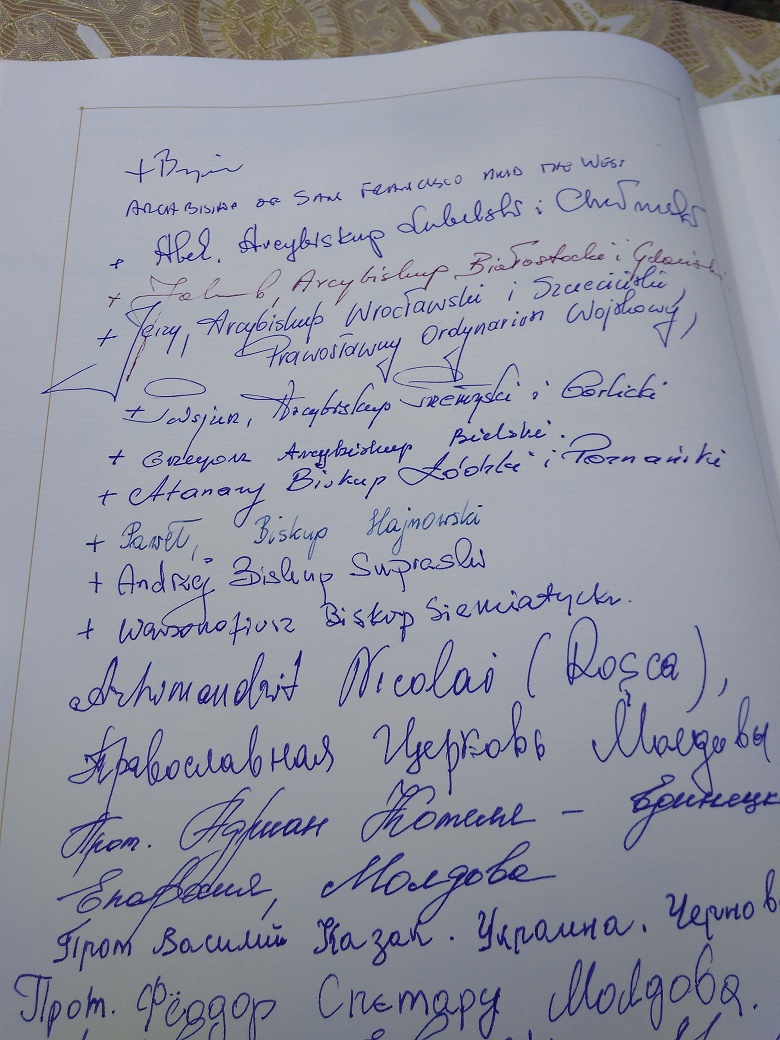 +
ARCHBISHOP OF SAN FRANCISCO AND THE WEST
+ Abel, Arcybiskup Lubelski i Chełmski
+ Jakub, Arcybiskup Białostocki i Gdański
+ Jerzy, Arcybiskup Wrocławski i Szczeciński,
Prawosławny Ordynariusz Wojskowy,
+ Arcybiskup Przemyski i Gorlicki
+ Grzegorz Arcybiskup Bielski.
+ Atanazy Biskup Łódzki i Poznański
+ Paweł, Biskup Hajnowski
+ Andrzej Biskup Supraski
+ Warsonofiusz Biskup Siemiatycki.
Arhimandrit Nicolai (Roșca),
Православная Церковь Молдовы
Прот. Адриан – Единецк
Епархия, Молдова
Прот Василий Казак. Украина. Чернов
Прот. Фёодор Спєтару Молдова.